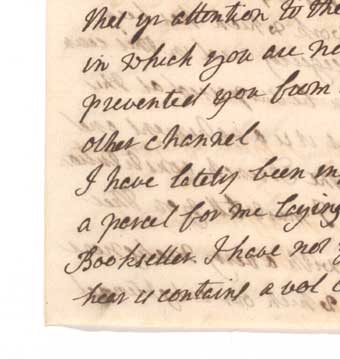 that yr attention to the
in which you are
prevented you from
other channel
I have lately been
a parcel for me laying
Bookseller. I have not
hear it contains a vol